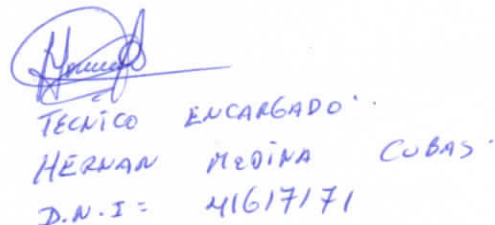 TECNICO ENCARGADO.
HERNAN MEDINA CUBAS.
D.N.I = 41617171